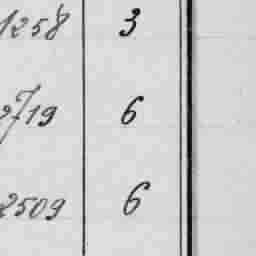 1258 3
2719 6
2509 6